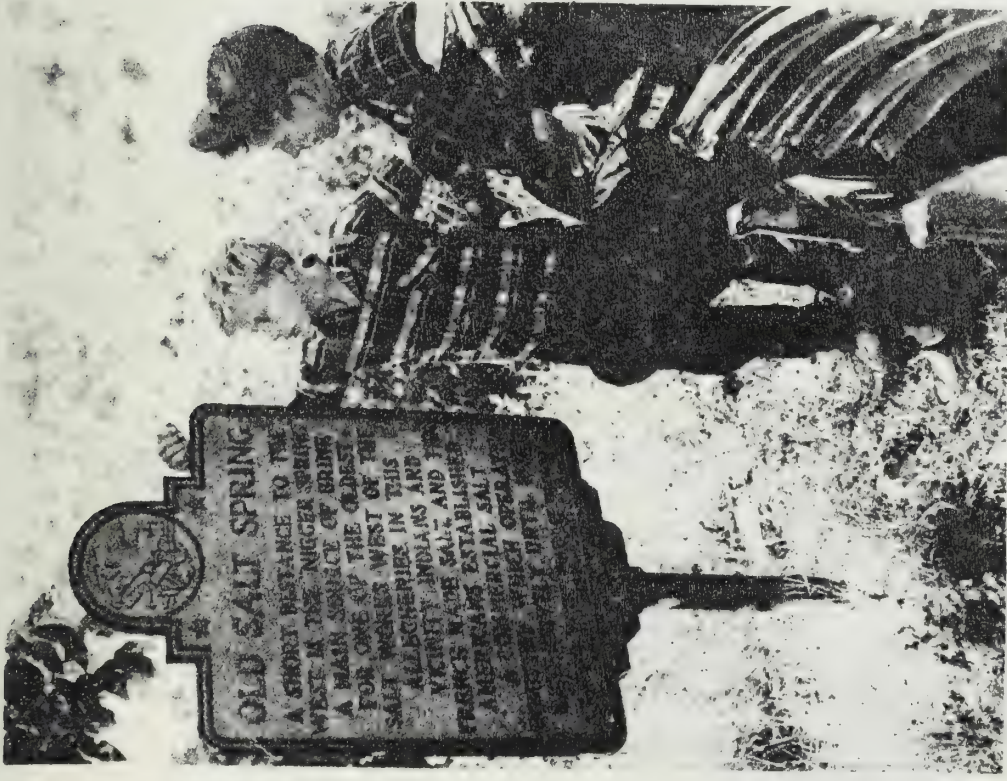 OLD SALT SPRING
A SHORT DISTANCE TO THE
WEST IS THE NIGGER SPRING
A MAIN SOURCE OF BRINE
FOR ONE OF THE OLDEST
SALT WORKS WEST OF THE
ALLEGHENIES IN THIS
VICINITY INDIANS AND
FRENCH MADE SALT AND THE
AMERICANS ESTABLISHED
COMMERCIAL SALT